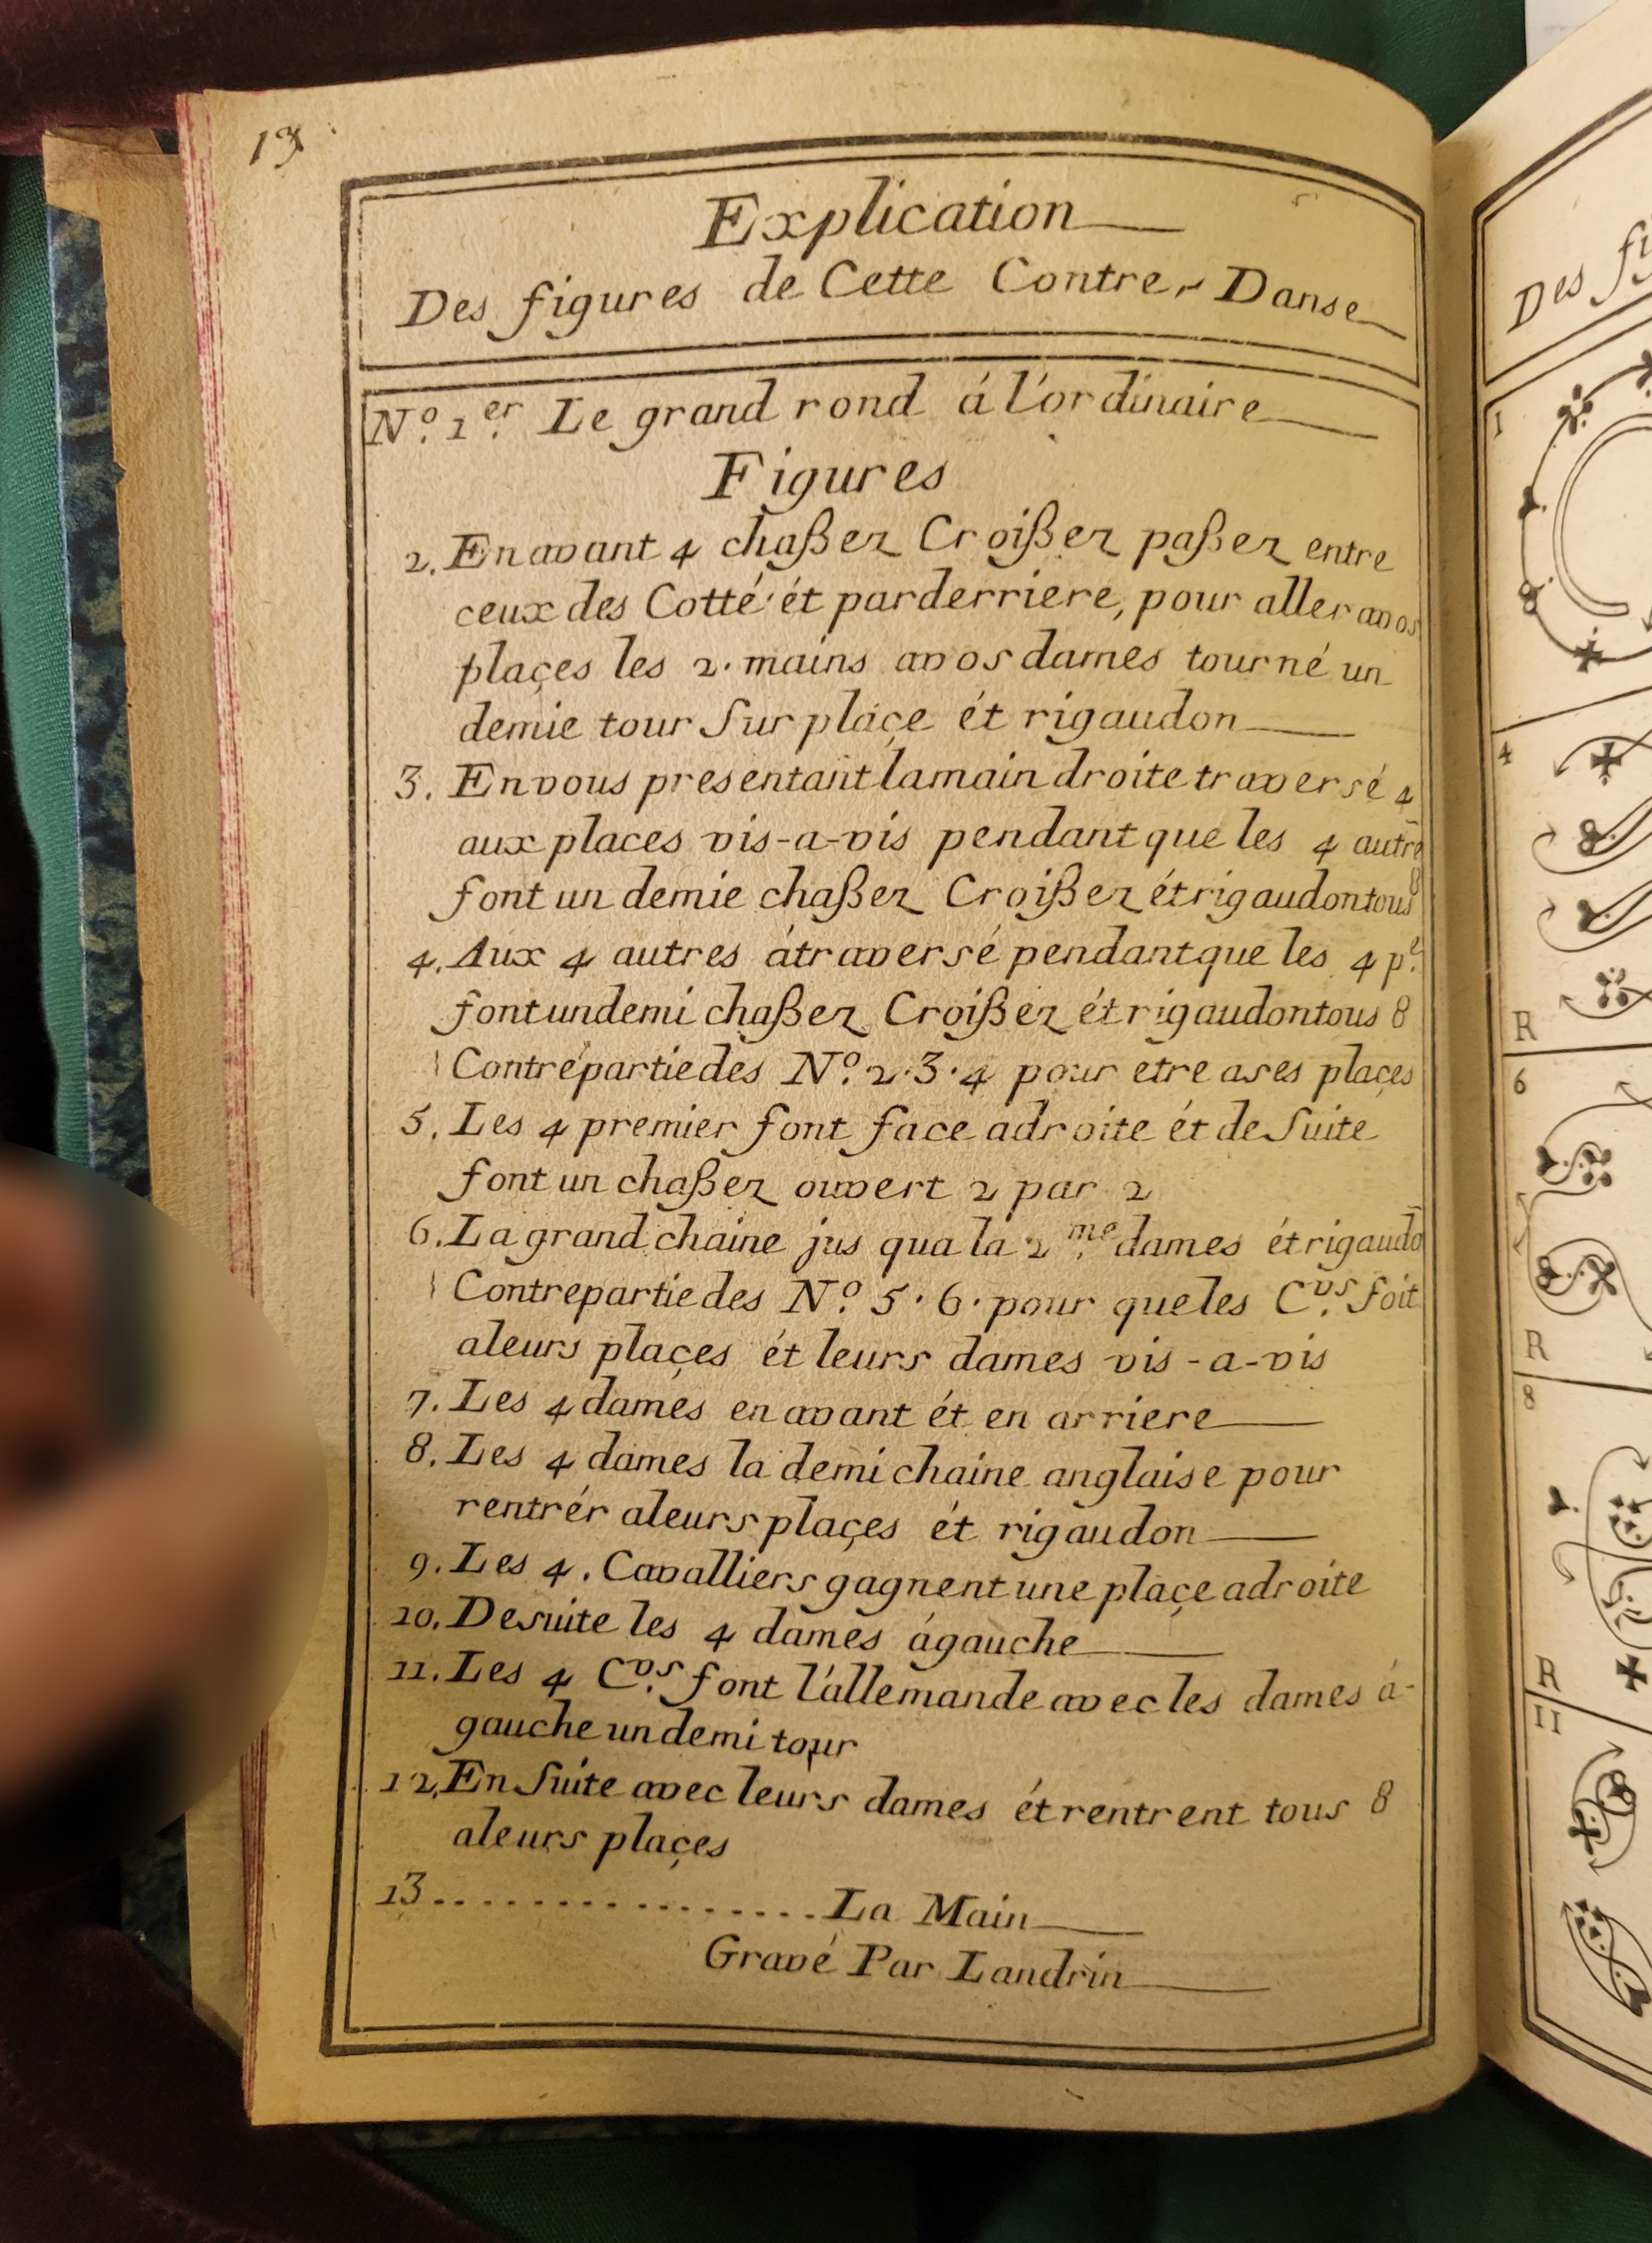 13
Explication
Des figures de Cette Contre-Danse
N.º 1.er Le grand rond á l'ordinaire
Figures
2. En avant 4 chaßez Croißez paßez entre
ceux des Cotté ét par derriere, pour aller a vos
plaçes les 2. mains a vos dames tourné un
demie tour Sur plaçe ét rigaudon
3. En vous presentant la main droite traversé 4
aux places vis-a-vis pendant que les 4 autre
font un demie chaßez Croißez ét rigaudon tous 8
4. Aux 4 autres á traversé pendant que les 4 p.e
font un demi chaßez Croißez ét rigaudon tous 8
Contrepartie des N.º 2.3.4 pour etre a ses plaçes
5. Les 4 premier font face a droite ét de Suite
font un chaßez ouvert 2 par 2
6. La grand chaine jus qua la 2.me dames ét rigaudō
Contrepartie des N.º 5.6. pour que les C.vs soit
a leurs plaçes ét leurs dames vis-a-vis
7. Les 4 dames en avant ét en arriere
8. Les 4 dames la demi chaine anglaise pour
rentrér a leurs plaçes ét rigaudon
9. Les 4. Cavalliers gagnent une plaçe a droite
10. De suite les 4 dames á gauche
11. Les 4 C.vs font l'allemande avec les dames á-
gauche un demi tour
12. En Suite avec leurs dames ét rentrent tous 8
a leurs plaçes
13................La Main
Gravé Par Landrin
Des fi
1
4
R
6
R
8
R
11